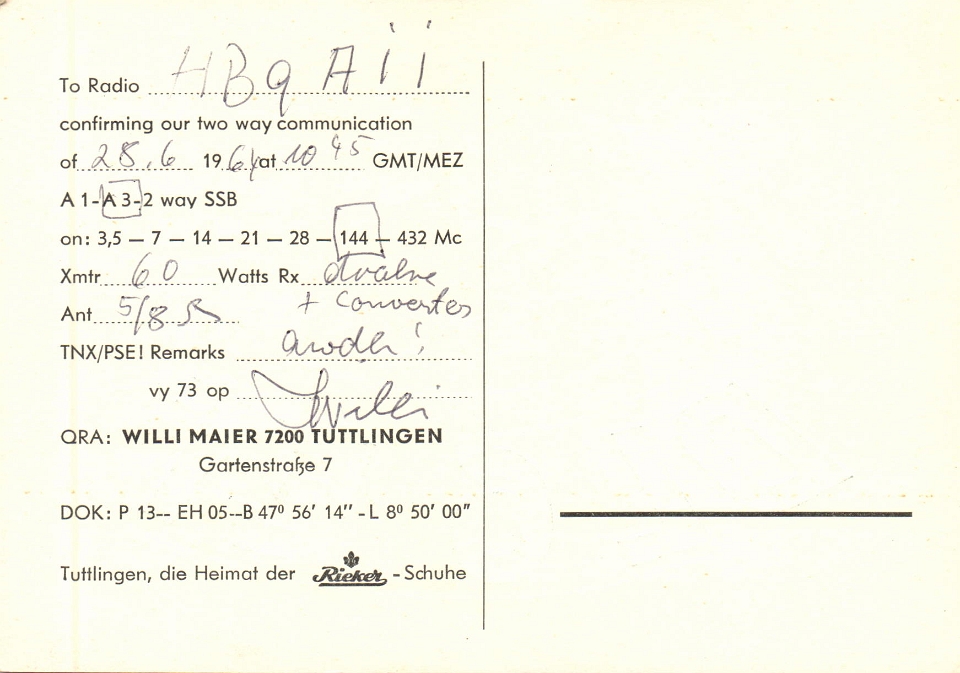 To Radio HB9Aii
confirming our two way communication
of 28.6 1964 at 10 45 GMT/MEZ
A 1-A 3-2 way SSB
on: 3,5 — 7 — 14 — 21 — 28 — 144 — 432 Mc
Xmtr 60 Watts Rx
Ant 5/8 + Converter
TNX/PSE! Remarks
vy 73 op Willi
QRA: WILLI MAIER 7200 TUTTLINGEN
Gartenstraße 7
DOK: P 13-- EH 05--B 47⁰ 56' 14" - L 8⁰ 50' 00"
Tuttlingen, die Heimat der Rieker - Schuhe